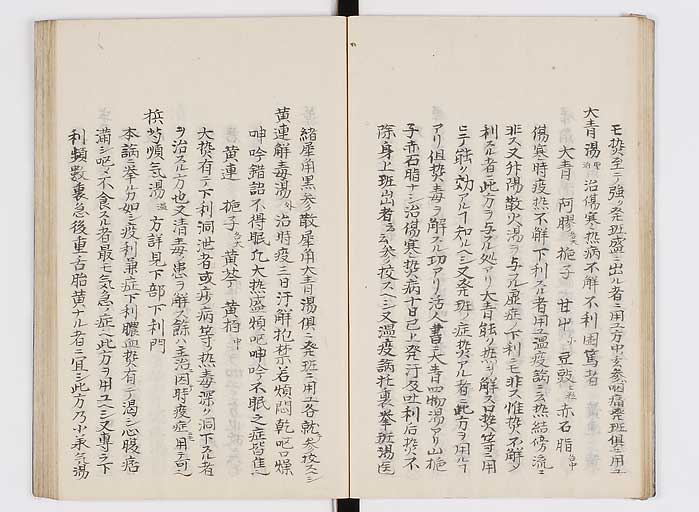 モ熱至テ強ク発班盛ニ出ル者ニ用ユ方中玄参咽痛発班俱ニ用ユ
大青湯 治傷寒热病不解不利困篤者
大青 阿膠 梔子 甘中 豆豉 赤石脂
傷寒時疫热不解下利スル者用ユ温疫論ニ云热結傍流ニ
非ス又升陽散火湯ヲ与フル虚症ノ下利ニモ非ス惟热不解〆
利スル者此方ヲ与ル処アリ大青能ク热ヲ解ス口热等ニ用
ヒテ能ク効アルヿ知ルヘシ又発班ノ症热アル者ニ此方ヲ用ルヿ
アリ但热毒ヲ解スル功アリ活人書ニ大青四物湯アリ山梔
子赤石脂ナシ治傷寒热病十日已上発汗及吐利后热不
除身上班出者ト云参考スヘシ又温疫論托裏挙班湯医
緒犀角黒参散犀角大青湯俱ニ発班ニ用ユ各就参考スヘシ
黄連解毒湯 治時疫三日汗解抱禁若煩悶乾呕口燥
呻吟錯語不得眠凡大热盛煩呕呻吟不眠之症皆佳
黄連 梔子 黄芩 黄柏
大热有テ下利洞泄者或ハ痧病等热毒深ク洞下スル者
ヲ治スル方也又清毒ノ患ヲ解ス餘ハ主治因テ時疫症ニ用テ可也
梹芍順気湯 方詳見下部下利門
本論ニ挙ル力如シ疫利兼症下利膿血热有テ渇シ心腹痞
満シ呕〆不食スル者最モ気急ノ症ヘ此方ヲ用ユヘシ又専ラ下
利頻数裏急後重舌胎黄ナル者ニ宜シ此方乃小承気湯